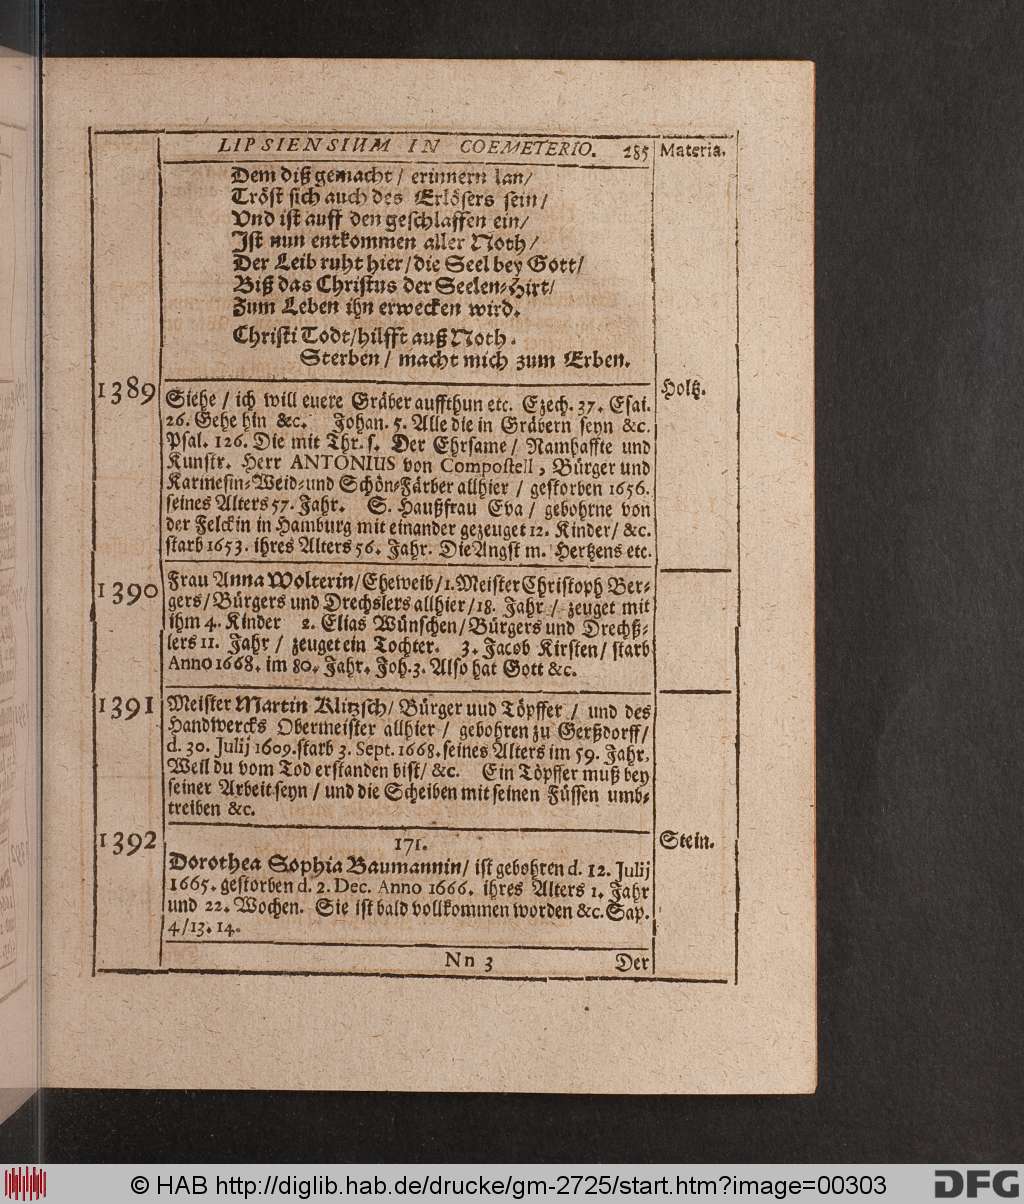 LIPSIENSIUM IN COEMETERIO. 285 Materia.
Dem diß gemacht / erinnern lan/
Tröst sich auch des Erlösers sein/
Vnd ist auff den geschlaffen ein/
Ist nun entkommen aller Noth/
Der Leib ruht hier/die Seel bey Gott/
Biß das Christus der Seelen-Hirt/
Zum Leben ihn erwecken wird.
Christi Todt/hilfft auß Noth.
Sterben / macht mich zum Erben.
1389 Siehe / ich will euere Gräber auffthun etc. Ezech. 37. Esai. Holtz.
26. Gehe hin &c. Johan. 5. Alle die in Gräbern seyn &c.
Psal. 126. Die mit Thr. s. Der Ehrsame / Namhaffte und
Kunstr. Herr ANTONIUS von Compostell, Bürger und
Karmesin-Weid-und Schön-Färber allhier / gestorben 1656.
seines Alters 57. Jahr. S. Haußfrau Eva / gebohrne von
der Felck in in Hamburg mit einander gezeuget 12. Kinder/ &c.
starb 1653. ihres Alters 56. Jahr. Die Angst m. Hertzens etc.
1390 Frau Anna Wolterin/ Eheweib/ 1. Meister Christoph Ber-
gers/ Bürgers und Drechslers allhier/ 18. Jahr / zeuget mit
ihm 4. Kinder 2. Elias Wünschen/ Bürgers und Drechß-
lers 11. Jahr / zeuget ein Tochter. 3. Jacob Kirsten/ starb
Anno 1668. im 80. Jahr. Joh. 3. Also hat Gott &c.
1391 Meister Martin Klitzsch/ Bürger uud Töpffer / und des
Handwercks Obermeister allhier / gebohren zu Gerßdorff/
d. 30. Julij 1609. starb 3. Sept. 1668. seines Alters im 59. Jahr,
Weil du vom Tod erstanden bist/ &c. Ein Töpffer muß bey
seiner Arbeit seyn / und die Scheiben mit seinen Füssen umb-
treiben &c.
1392 171. Stein.
Dorothea Sophia Baumannin/ ist gebohren d. 12. Julij
1665. gestorben d. 2. Dec. Anno 1666. ihres Alters 1. Jahr
und 22. Wochen. Sie ist bald vollkommen worden &c. Sap.
4/ 13. 14.
Nn 3 Der
© HAB http://diglib.hab.de/drucke/gm-2725/start.htm?image=00303
DFG